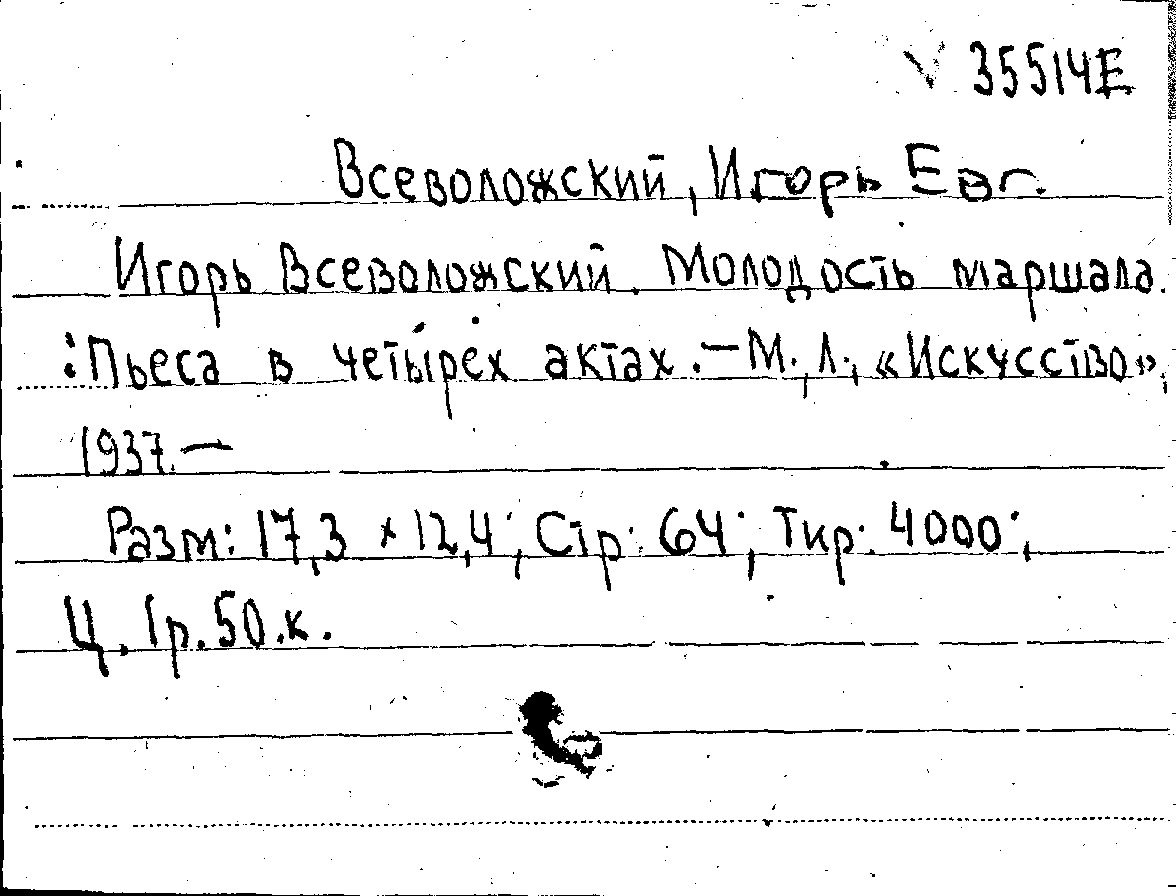 V 35514Е
Всеволожский, Игорь Евг.
Игорь Всеволожский. Молодость маршала.
: Пьеса в четырех актах. — М., Л., «Искусство»,
1937. —
Разм: 17,3 x 12,4; Стр: 64; Тир: 4000;
Ц. 1р. 50.к.